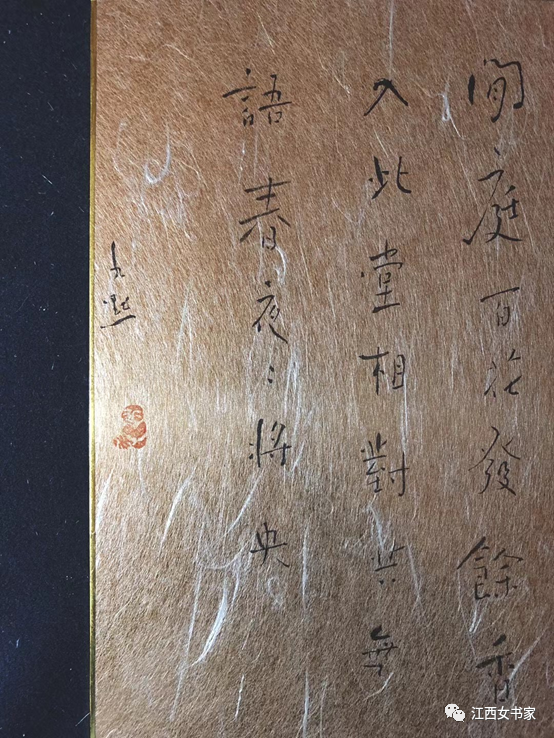 間庭百花發餘香
入此堂相對共無
語春夜〻將央
默
江西女书家